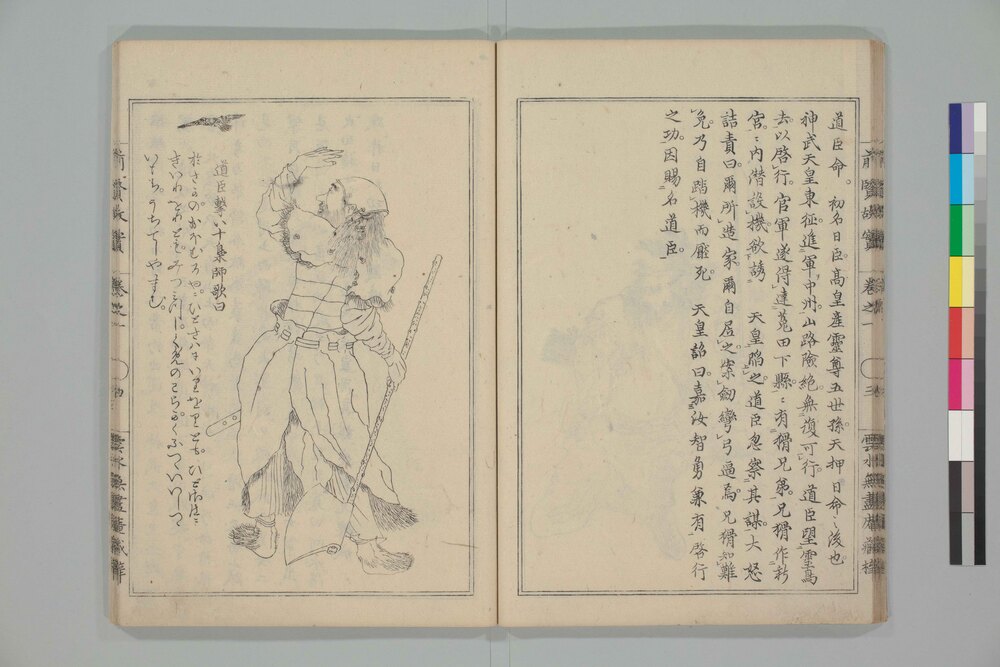 道臣命。初名日臣。高皇産靈尊五世孫。天押日命之後也。
神武天皇東征進軍中州。山路險絶。無復可行。道臣望靈烏
去以啓行。官軍遂得達菟田下縣。縣有猾兄弟。兄猾作新
宮。宮內潛設機。欲誘 天皇陷之。道臣忽察其謀。大怒
詰責曰。爾所造家爾自居之。案劔彎弓逼焉。兄猾知難
免。乃自踏機而壓死。 天皇詔曰。嘉汝智勇兼有啓行
之功。因賜名道臣。
前賢故實
卷之一
三
雲水無盡庵
道臣撃八十梟師歌曰
於さかの おほむろやに ひとさはに いりをりとも ひとさはに
きいりをりとも みつみつし くめのこらが くぶつゝい いしつゝ
いもち うちてしやまむ
前賢故實
卷之一